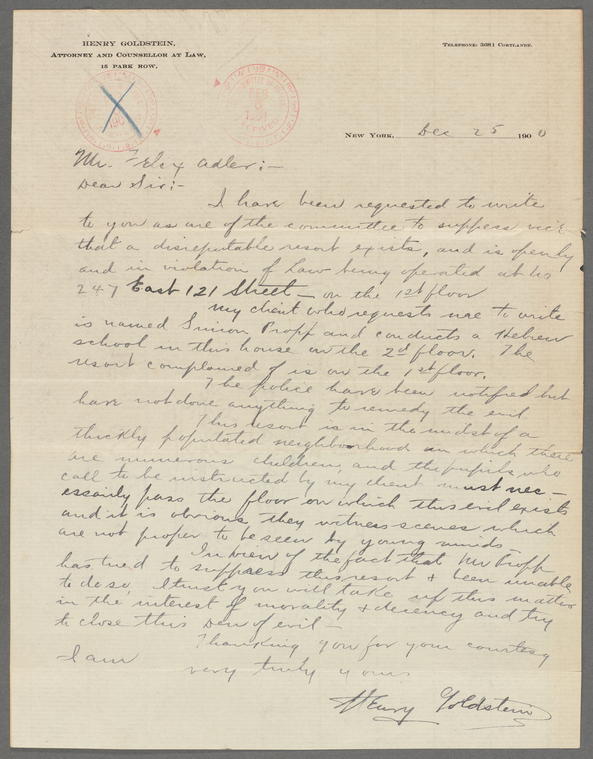 HENRY GOLDSTEIN,
ATTORNEY AND COUNSELLOR AT LAW,
15 PARK ROW,
TELEPHONE: 3681 CORTLANDT.
NEW YORK, Dec 25 1900
Mr. Felix Adler:-
Dear Sir:-
I have been requested to write
to you as one of the committee to suppress vice
that a disreputable resort exists, and is openly
and in violation of Law being operated at No
247 East 121 Street - on the 1st floor
My client who requests me to write
is named Simon Propp and conducts a Hebrew
school in this house on the 2d floor. The
resort complained of is on the 1st floor.
The police have been notified but
have not done anything to remedy the evil
This resort is in the midst of a
thickly populated neighborhood in which there
are numerous children, and the pupils who
call to be instructed by my client must nec-
essarily pass the floor on which this evil exists
and it is obvious they witness scenes which
are not proper to be seen by young minds
In view of the fact that Mr Propp
has tried to suppress this resort + been unable
to do so, I trust you will take up this matter
in the interest of morality + decency and try
to close this Den of evil -
Thanking you for your courtesy
I am very truly yours
Henry Goldstein